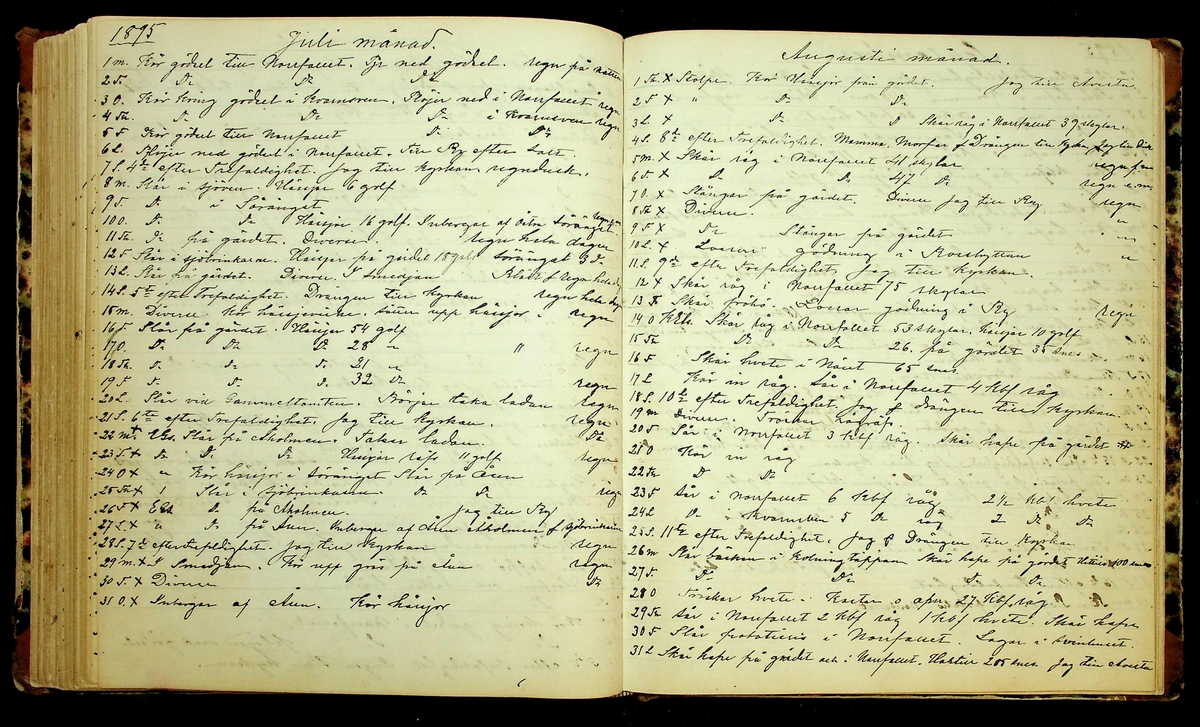 1895
Juli månad.
1 m. Kör gödsel till Norrfallet. ned gödsel. regn på natten
2 T. Do Do Do
3 O. Kör kring gödsel i Plöjer ned i Norrfallet regn
4 Th. Do Do Do i regn
5 F Kör gödsel till Norrfallet Do Do
6 L. Plöjer ned gödsel i Norrfallet. Till By efter Salt.
7 S. 4de efter Trefaldighet. Jag till kyrkan, regndusk.
8 m. Slår i Sjövren. Hässjar 6 golf
9 T. Do i Söränget
10 O. Do Do Hässjar 16 golf. Inbergar af Söränget
11 Th. Do på gärdet. Diverse. regn hela dagen
12 F Slår i Sjöbrinkarne. Hässjar på gärdet 18 golf Söränget 3 Do.
13 L. Slår på gärdet. Diverse. I Smedjan Blåst & Regn hela dag
14 S. 5te efter Trefaldighet. Drängen till kyrkan regn hela dag
15 m. Diverse Kör hässjevirke. sätter upp hässjor. regn
16 T Slår på gärdet. Hässjar 54 golf
17 O. Do Do Do 28 " " regn
18 Th. Do Do Do 21 "
19 F Do Do Do 32 Do regn
20 L. Slår vid Gammeltomten. Börjar täka ladan regn
21 S. 6te efter Trefaldighet. Jag till kyrkan. regn
22 m. Slår på Aholmen. Täker ladan. Do
23 T. x Do Do Do Hässjar 11 golf regn
24 O x " Kör hässjor i Söränget Slår på Åsen
25 Th x Slår i Sjöbrinkarne. Do Do regn
26 F x Do på Aholmen. Jag till By
27 L x " Do på Åsen. Inbergar af Åsen Aholmen & Sjöbrinkarne
28 S. 7de efter trefaldighet. Jag till kyrkan regn
29 m. x I Smedjan. Kör upp gräs på Åsen regn
30 T. x Diverse Do
31 O. x Inbergar af Åsen. Kör hässjor
Augusti månad.
1 Th x Stolpe. Kör Hässjor från gärdet. Jag till Avesta
2 F x " Do Do
3 L x Do Skär råg i Norrfallet 39 skylar.
4 S. 8de efter Trefaldighet. Mamma Morfar & Drängen till kyrkan
5 m x Skär råg i Norrfallet 41 skylar regn
6 T x Do Do 47 Do regn e.m.
7 O. x Stängar på gärdet. Diverse Jag till By regn
8 Th x Diverse. "
9 F x Do Stängar på gärdet "
10 L. x Lossar gödning i "
11 S. 9de efter Trefaldighet. Jag till kyrkan.
12 x Skär råg i Norrfallet 75 skylar
13 T. Skär fröhö. Lossar gödning i By regn
14 O Skär råg i Norrfallet 53 skylar, hässjar 10 golf
15 Th Do Do 26. på gärdet 35 snes
16 F Skär hvete i Näset 65 snes.
17 L Kör in råg. Sår i Norrfallet 4 kbf råg
18 S. 10de efter Trefaldighet. Jag & drängen till kyrkan.
19 m Diverse. Tröskar
20 T Sår i Norrfallet 3 kbf råg. Skär hafre på gärdet
21 O Kör in råg
22 Th Do Do
23 F Sår i Norrfallet 6 kbf råg 2 1/2 kbf hvete
24 L Do 5 Do råg 2 Do Do
25 S. 11te efter Trefaldighet. Jag & Drängen till kyrkan
26 m Slår backen i Kolningstäppan Skär hafre på gärdet 100 snes
27 T. Do Do Do Do
28 O Tröskar hvete. Kastar 27 kbf. råg
29 Th Sår i Norrfallet 2 kbf råg 1 kbf hvete. Skär hafre
30 F Slår i Norrfallet. Lagar i svinhuset.
31 L Skär hafre på gärdet och i Norrfallet. 205 snes. Jag till Avesta